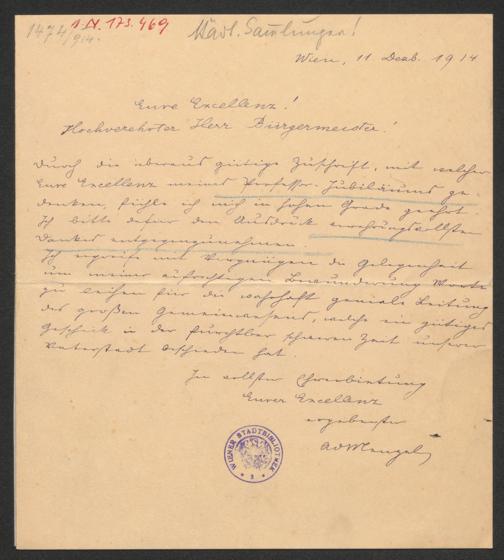 1474/914.
I.N. 173.469
Städt. Sammlungen!
Wien, 11 Dezb. 1914
Eure Excellenz!
Hochverehrter Herr Bürgermeister!
Durch die überaus gütige Zuschrift, mit welcher
Eure Excellenz meines Professor-Jubiläums ge-
denken, fühle ich mich in hohem Grade geehrt.
Ich bitte dafür den Ausdruck verehrungsvollsten
Dankes entgegenzunehmen.
Ich ergreife mit Vergnügen die Gelegenheit
um meiner aufrichtigen Bewunderung Worte
zu leihen für die wahrhaft geniale Leitung
des großen Gemeinwesens, welche ein gütiges
Geschick in der furchtbar schweren Zeit unserer
Vaterstadt beschieden hat.
In vollster Ehrerbietung
Eurer Excellenz
ergebenster
WIENER STADTBIBLIOTHEK